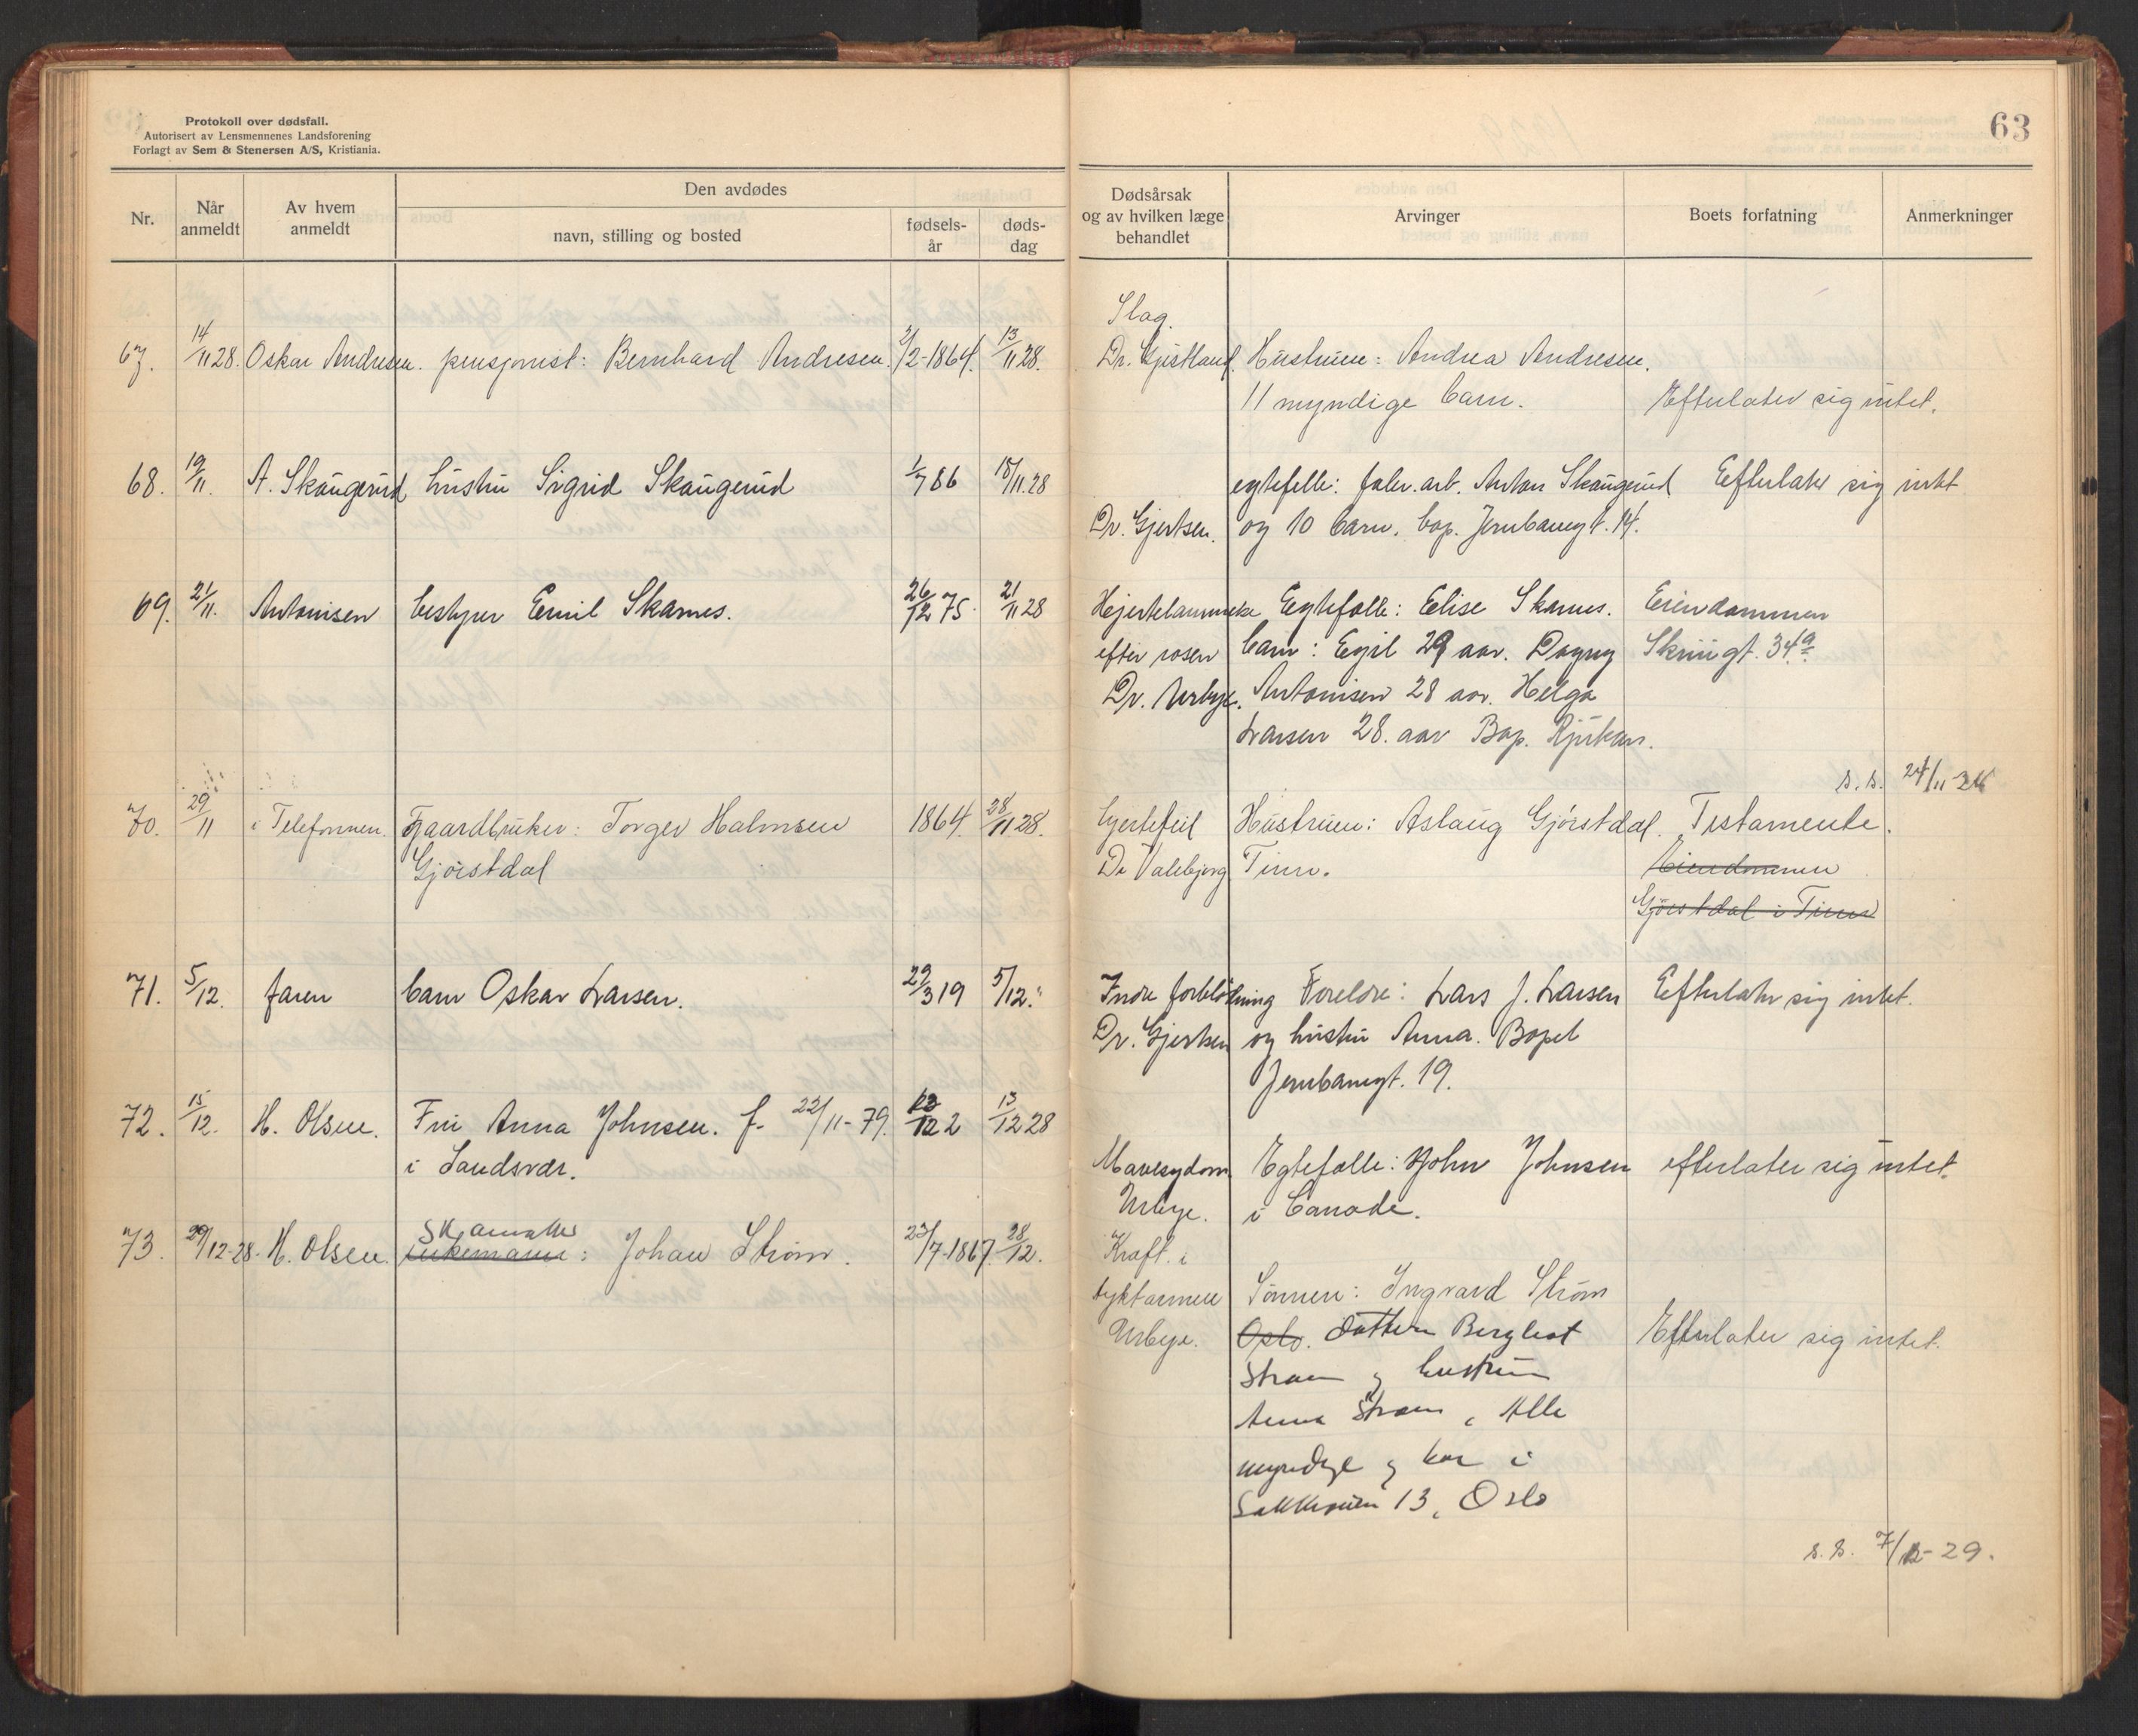 Protokoll over dødsfall.
Autorisert av Lensmennenes Landsforening
Forlagt av Sem & Stenersen A/S, Kristiania.
63
Nr.
Når anmeldt
Av hvem anmeldt
Den avdødes
navn, stilling og bosted
fødsels-år
døds-dag
Dødsårsak og av hvilken læge behandlet
Arvinger
Boets forfatning
Anmerkninger
Slag.
67. 14/11 28. Oskar Andresen. pensjonist: Bernhard Andresen. 3/2-1864. 13/11 28. Dr. Hustruen: Andrea Andresen.
11 myndige barn. Efterlater sig intet.
68. 19/11. A. Skaugerud hustru Sigrid Skaugerud 1/7 86 18/11.28 egtefelle: fabr. arb. Anton Skaugerud Efterlater sig intet
Dr. Gjertsen. og 10 barn. bop. Jernbanegt. 14.
69. 21/11. Antonisen bestyrer Emil Skarnes. 26/12 75. 21/11 28 Hjertelammelse Egtefelle: Elise Skarnes. Eiendommen
efter rosen barn: Egil 29 aar. Dagny Skriugt. 34a
Dr. Urbye. Antonisen 28 aar. Helga
Larsen 28. aar Bop. Rjukan.
s.s. 24/11-
70. 29/11 i Telefonnen. Gaardbruker: Torger Halvorsen 1864. 28/11 28. hjertefeil Hustruen: Aslaug Gjøistdal. Testamente.
Gjøistdal Dr Valebjørg Tinn. Eiendommen
Gjøistdal i Tinn
71. 5/12. faren barn Oskar Larsen. 29/3 19 5/12." Indre forblødning Foreldre: Lars J. Larsen Efterlater sig intet.
Dr. Gjertsen og hustru Anna. Bopel
Jernbanegt. 19.
72. 15/12. H. Olsen. Fru Anna Johnsen. f. 22/11-79. 13/12 28
i Sandsvær. Mavesygdom Egtefælle: John Johnsen efterlater sig intet.
Urbye. i Canada.
73. 29/12-28. H. Olsen. Skomaker
enkemann: Johan Strøm. 23/7-1867. 28/12. Kræft i
tyktarmen Sønnen: Ingvard Strøm
Urbye. Oslo. datteren Bergliot Efterlater sig intet.
Strøm og hustru
Anna Strøm, Alle
myndige og bor i
13, Oslo
s.s. 7/12-29.